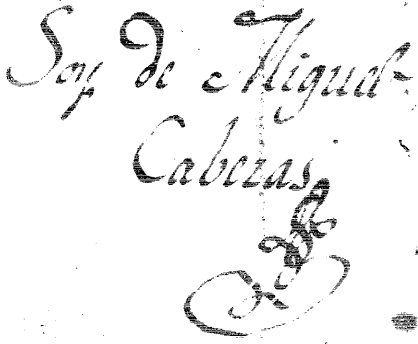 Soy de Miguel
Cabezas